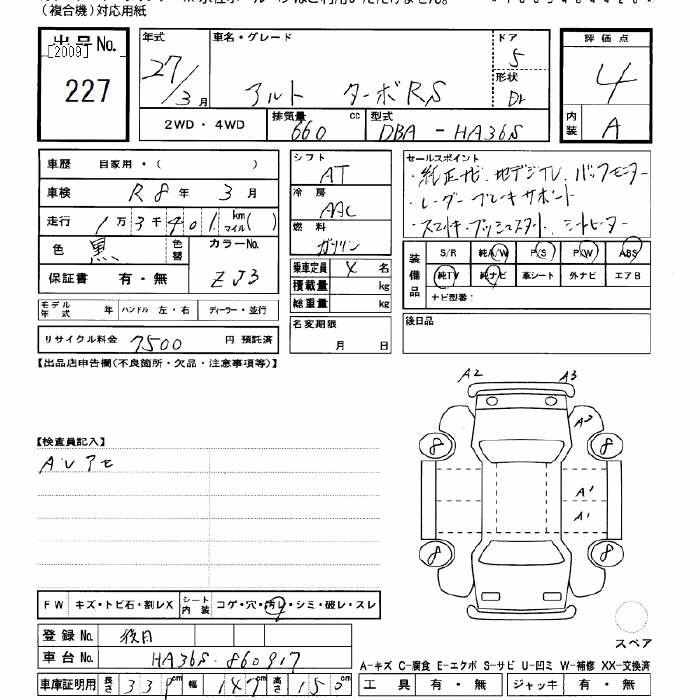 (複合機)対応用紙
出品No.
[2009]
227
年式
27/3月
車名・グレード
アルト ターボRS
ドア
5
形状
評価点
4
内装
A
2WD・4WD
排気量
660
cc
型式
DBA-HA36S
車歴 自家用・( )
車検 R8年3月
走行 1万3千401
km
マイル( )
色 黒
色替
カラーNo.
ZJ3
保証書 有・無
シフト
AT
冷房
AAC
燃料
ガソリン
乗車定員 4 名
積載量 kg
総重量 kg
名変期限
月 日
セールスポイント
・純正ナビ、地デジTV、バックモニター
・レーダーブレーキサポート
・スマートキープッシュスタート、シートヒーター
装備品
S/R 純A/W P/S P/W ABS
純TV 純ナビ 革シート 外ナビ エアB
ナビ型番:
モデル年式 年 ハンドル 左・右 ディーラー・並行
後日品
リサイクル料金 7500 円 預託済
【出品店申告欄(不良箇所・欠品・注意事項等)】
A2 A3
A3
8 8
【検査員記入】
A1
A1
8 8
FW キズ・トビ石・割レX
シート内装
コゲ・穴・汚レ・シミ・破レ・スレ
登録No. 後日
スペア
車台No. HA36S-860917
A-キズ C-腐食 E-エクボ S-サビ U-凹ミ W-補修 XX-交換済
車庫証明用 長さ 339 幅 147 高さ 150 cm
工具 有・無 ジャッキ 有・無